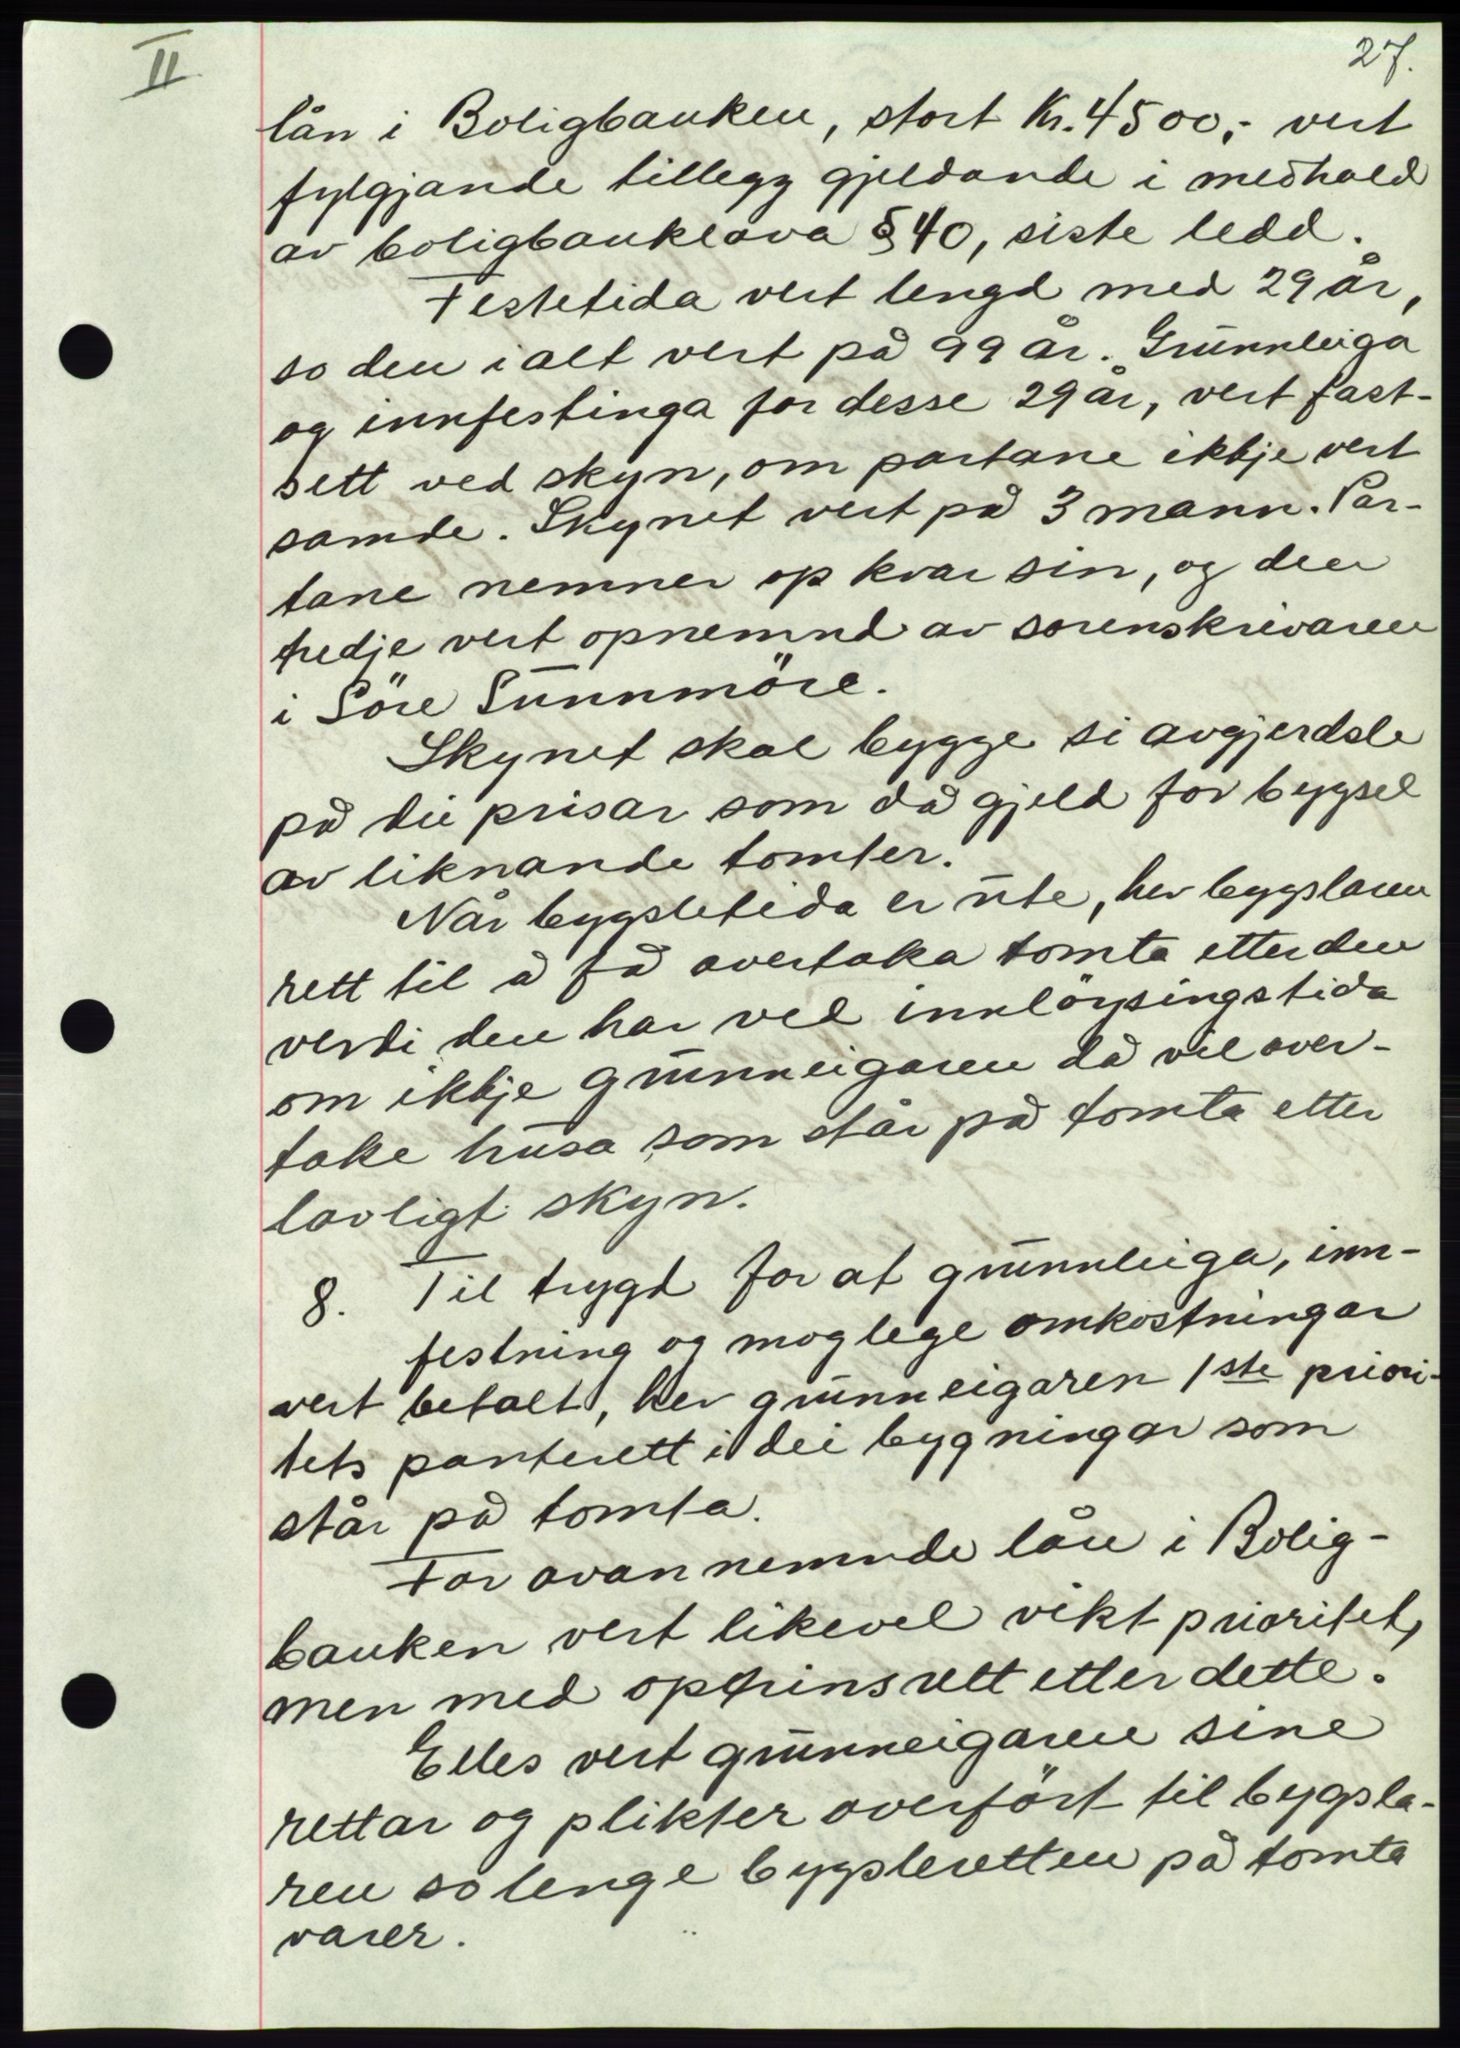 II
27.
lån i Boligbanken, stort Kr. 4500,- vert
fylgjande tillegg gjeldande i medhald
av boligbanklova § 40, siste ledd.
Festetida vert lengd med 29 år,
so den i alt vert på 99 år. Grunnleiga
og innfestinga for desse 29 år, vert fast-
sett ved skyn, om partane ikkje vert
samde. Skynet vert på 3 mann. Par-
tane nemner op kvar sin, og den
tredje vert opnemnd av sorenskrivaren
i Söre Sunnmöre.
Skynet skal bygge si avgjerdsle
på dei prisar som då gjeld for bygsel
av liknande tomter.
Når bygsletida er ute, hev bygslaren
rett til å få overtaka tomta etter den
verdi den har ved innlöysingstida
om ikkje grunneigaren då vil over-
take husa som står på tomta etter
lovligt skyn.
8. Til trygd for at grunnleiga, inn-
festning og moglege omkostningar
vert betalt, hev grunneigaren 1ste priori-
tets panterett i dei bygningar som
står på tomta.
For ovannemnde lån i Bolig-
banken vert likevel vikt prioritet,
men med optrinsrett etter dette.
Elles vert grunneigaren sine
rettar og plikter overfört til bygsla-
ren so lenge bygsleretten på tomta
varer.